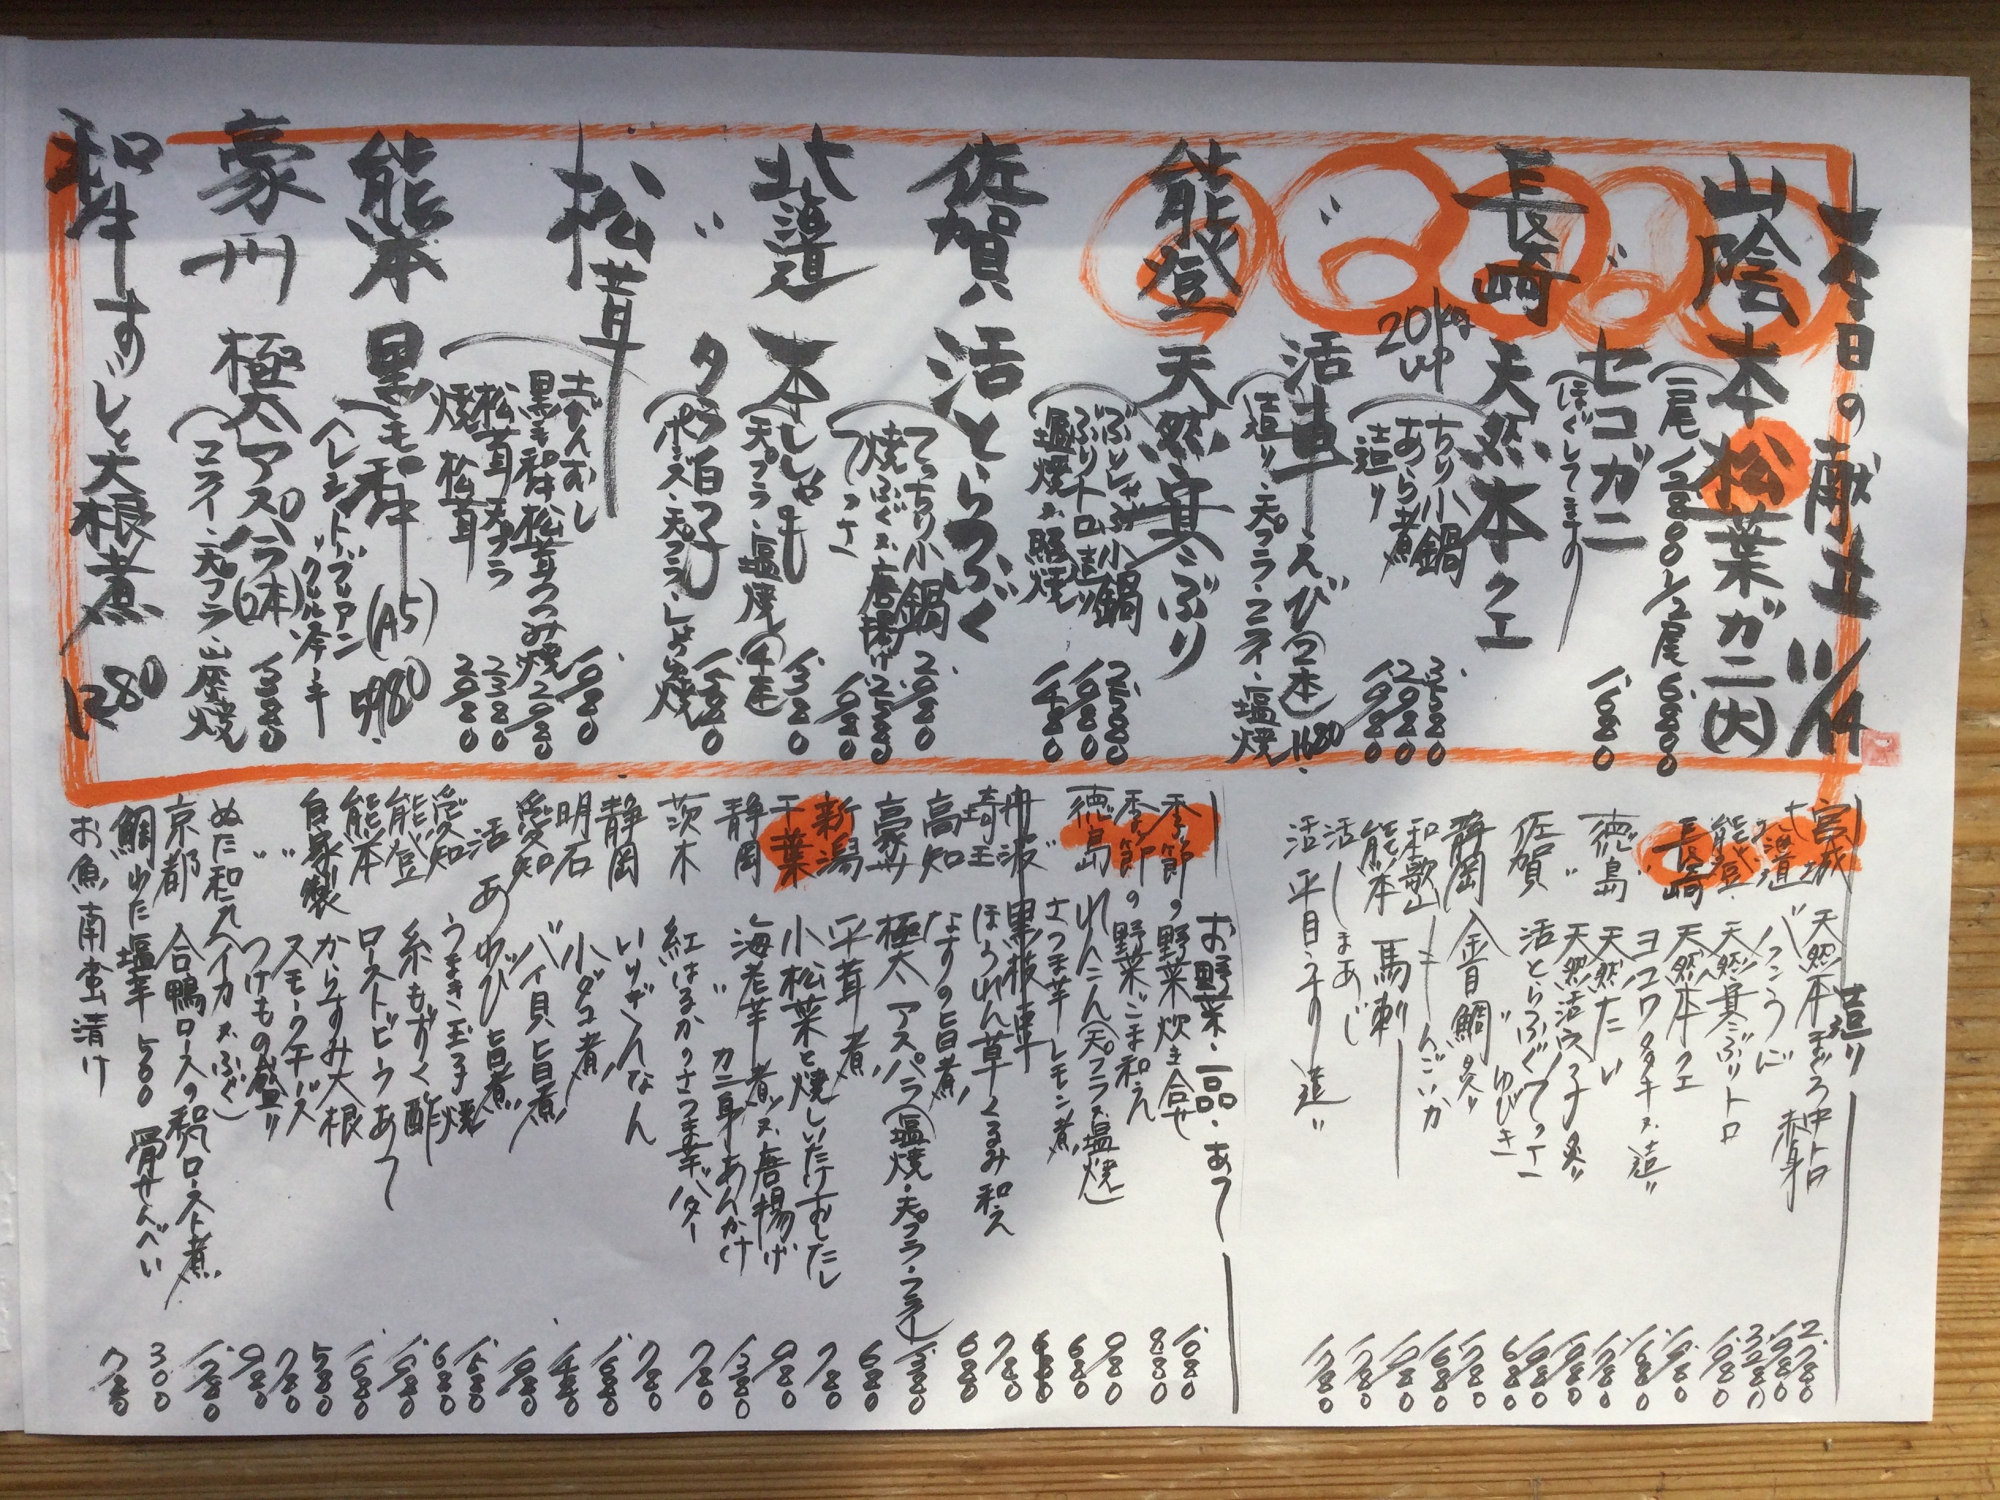 本日の献立 11/14
山陰 本松葉ガニ(大)
一尾 12800 1/2尾 6800
〃 セコガニ
ほぐしてます 1680
長崎 天然本クエ
20kg up
ちり小鍋 3580
あら煮 2980
造り 1980
〃 活車えび(2本) 1180
造り・天プラ・フライ・塩焼
能登 天然寒ぶり
ぶりしゃぶ小鍋 2580
ぶりトロ造り 1980
塩焼又照焼 1480
佐賀 活とらふぐ
てっちり小鍋 2980
焼ふぐ又唐揚げ 2580
てっさ 1980
北海道 本ししゃも(4本) 1380
天プラ・塩焼
〃 タラ白子 1480
ポン酢・天プラ・しょう油焼
松茸
土びんむし 1080
黒毛和牛松茸つつみ焼 2980
松茸天プラ 2380
焼松茸 2980
熊本 黒毛和牛(A5) 5980
ヘレシャトーブリアン
豪州 極太アスパラ(2本) 1380
フライ・天プラ・塩焼
和牛すじと大根煮 1280
造り
宮城 天然本まぐろ中トロ 2780
赤身 1980
北海道 バフンうに 3280
能登 天然寒ぶりトロ 1980
長崎 天然本クエ 1980
〃 ヨコワタタキ又造り 1680
徳島 天然たい 1780
〃 天然活穴子炙り 1980
佐賀 活とらふぐてっさ 1980
〃 ゆびき 680
静岡 金目鯛炙り 1780
和歌山 もんごいか 1680
熊本 馬刺 1980
活しまあじ 1780
活平目うすり造り 1780
お野菜・一品・あて
季節の野菜炊き合せ 1080
季節の野菜ごま和え 880
徳島 れんこん(天プラ又塩焼) 980
〃 さつま芋レモン煮 680
丹波 黒枝豆
埼玉 ほうれん草くるみ和え 780
高知 なすの旨煮 680
豪州 極太アスパラ(塩焼・天プラ・フライ) 1380
新潟 平茸煮 680
千葉 小松菜と焼しいたけおしたし 780
静岡 海老芋煮又唐揚げ 980
〃 カニ身あんかけ 1380
茨木 紅はるかのさつま芋バター 780
静岡 いりぎんなん 780
明石 小ダコ煮 1080
愛知 バイ貝旨煮 1480
活あゆび旨煮 1980
愛知 うまき玉子焼 1580
能登 糸もずく酢 680
熊本 ローストビーフあて 1980
自家製 からすみ大根 1080
〃 スモークチーズ 580
〃 つけもの盛り 780
ぬた和え(イカ又ふぐ) 980
京都 合鴨ロースの和風ロースト煮 1280
鯛ゆた塩辛 500 骨せんべい 300
お魚南蛮漬け 780